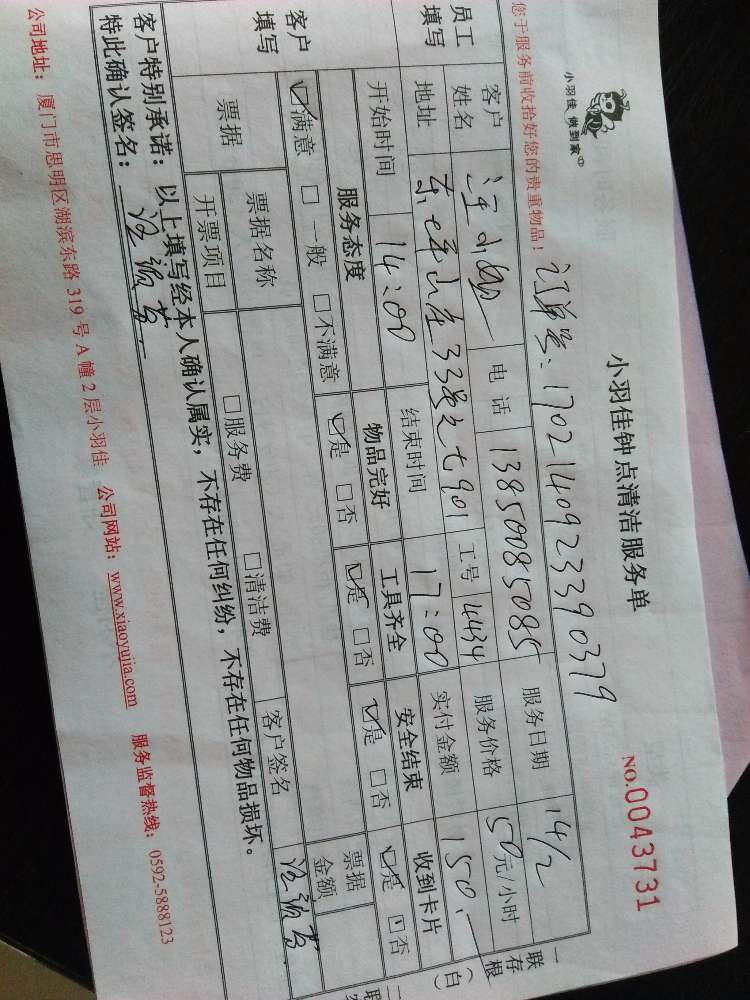 小羽佳 做到家
小羽佳钟点清洁服务单
NO.0043731
您于服务前收拾好您的贵重物品！
订单号：1702140923390379
员工填写
客户姓名 汪小姐 电话 13850085085 服务日期 14/2
地址 东 山庄33号之七901 工号 4434 服务价格 50元/小时
开始时间 14:00 结束时间 17:00 实付金额 150.-
客户填写
服务态度 物品完好 工具齐全 安全结束 收到卡片
☑满意 □一般 □不满意 ☑是 □否 ☑是 □否 ☑是 □否 ☑是 □否
票据 票据名称 客户签名 票据金额
开票项目 □服务费 □清洁费
客户特别承诺：以上填写经本人确认属实，不存在任何纠纷，不存在任何物品损坏。
特此确认签名：
公司地址：厦门市思明区湖滨东路319号A幢2层小羽佳 公司网站：www.xiaoyujia.com 服务监督热线：0592-5888123
一联存根（白）
二联